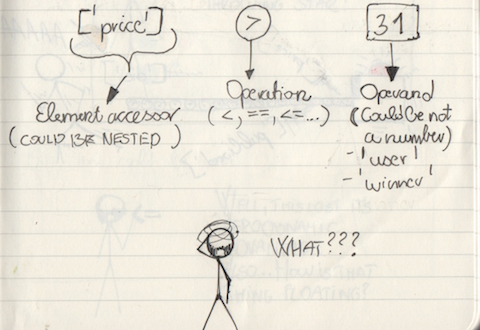 ['price'] > 31
Element accessor
(COULD BE NESTED)
Operation
(<, ==, <=...)
Operand
(Could be not
a number)
- 'user'
- 'winner'
WHAT???